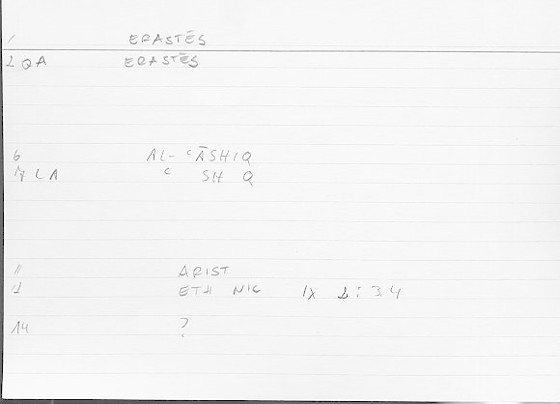 1 ERASTĒS
2 QA ERASTĒS
6 AL- ʿĀSHIQ
7 LA ʿ SH Q
11 ARIST
12 ETH NIC IX 1: 34
14 ?